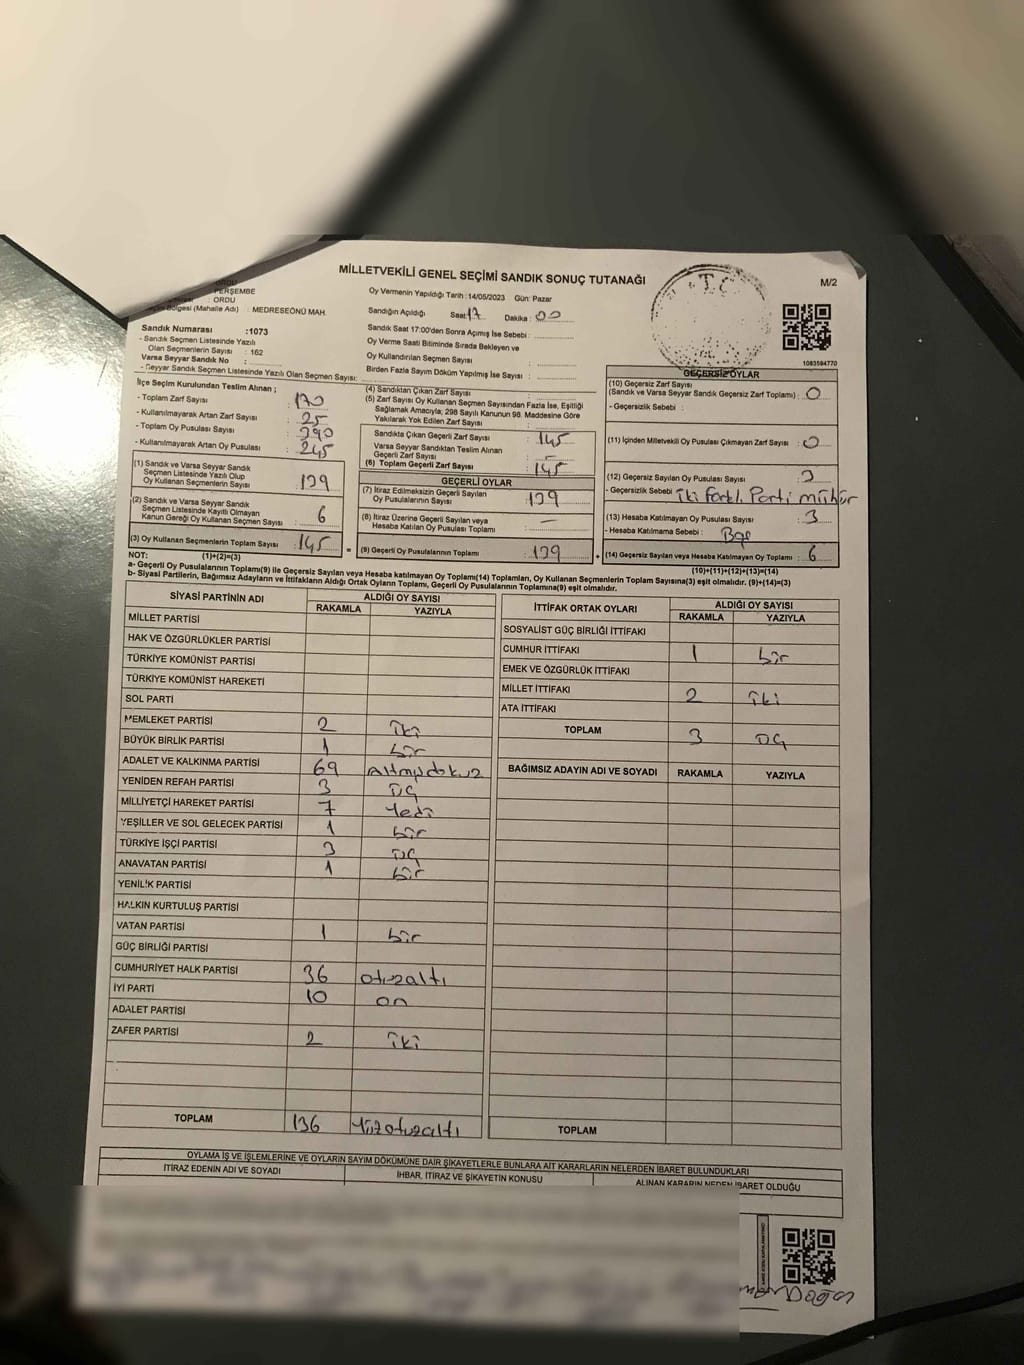 MİLLETVEKİLİ GENEL SEÇİMİ SANDIK SONUÇ TUTANAĞI
M/2
T.C.
ORDU
PERŞEMBE
: ORDU
Bölgesi (Mahalle Adı) : MEDRESEÖNÜ MAH.
Sandık Numarası :1073
- Sandık Seçmen Listesinde Yazılı
Olan Seçmenlerin Sayısı : 162
Varsa Seyyar Sandık No :
- Seyyar Sandık Seçmen Listesinde Yazılı Olan Seçmen Sayısı:
Oy Vermenin Yapıldığı Tarih :14/05/2023 Gün: Pazar
Sandığın Açıldığı Saat: 17 Dakika : 00
Sandık Saat 17:00'den Sonra Açılmış İse Sebebi :
Oy Verme Saati Bitiminde Sırada Bekleyen ve
Oy Kullandırılan Seçmen Sayısı :
Birden Fazla Sayım Döküm Yapılmış İse Sayısı :
1083584770
İlçe Seçim Kurulundan Teslim Alınan ;
- Toplam Zarf Sayısı : 170
- Kullanılmayarak Artan Zarf Sayısı : 25
- Toplam Oy Pusulası Sayısı : 390
- Kullanılmayarak Artan Oy Pusulası : 245
(1) Sandık ve Varsa Seyyar Sandık
Seçmen Listesinde Yazılı Olup
Oy Kullanan Seçmenlerin Sayısı : 139
(2) Sandık ve Varsa Seyyar Sandık
Seçmen Listesinde Kayıtlı Olmayan
Kanun Gereği Oy Kullanan Seçmen Sayısı : 6
(3) Oy Kullanan Seçmenlerin Toplam Sayısı : 145
(1)+(2)=(3)
(4) Sandıktan Çıkan Zarf Sayısı :
(5) Zarf Sayısı Oy Kullanan Seçmen Sayısından Fazla İse, Eşitliği
Sağlamak Amacıyla, 298 Sayılı Kanunun 98. Maddesine Göre
Yakılarak Yok Edilen Zarf Sayısı :
Sandıkta Çıkan Geçerli Zarf Sayısı : 145
Varsa Seyyar Sandıktan Teslim Alınan
Geçerli Zarf Sayısı : -
(6) Toplam Geçerli Zarf Sayısı : 145
GEÇERLİ OYLAR
(7) İtiraz Edilmeksizin Geçerli Sayılan
Oy Pusulalarının Sayısı : 139
(8) İtiraz Üzerine Geçerli Sayılan veya
Hesaba Katılan Oy Pusulası Toplamı : -
= (9) Geçerli Oy Pusulalarının Toplamı : 139 +
GEÇERSİZ OYLAR
(10) Geçersiz Zarf Sayısı
(Sandık ve Varsa Seyyar Sandık Geçersiz Zarf Toplamı) : 0
- Geçersizlik Sebebi :
(11) İçinden Milletvekili Oy Pusulası Çıkmayan Zarf Sayısı : 0
(12) Geçersiz Sayılan Oy Pusulası Sayısı : 3
- Geçersizlik Sebebi : iki farklı Parti mühür
(13) Hesaba Katılmayan Oy Pusulası Sayısı : 3
- Hesaba Katılmama Sebebi : Boş
(14) Geçersiz Sayılan veya Hesaba Katılmayan Oy Toplamı : 6
(10)+(11)+(12)+(13)=(14)
NOT:
a- Geçerli Oy Pusulalarının Toplamı(9) ile Geçersiz Sayılan veya Hesaba katılmayan Oy Toplamı(14) Toplamları, Oy Kullanan Seçmenlerin Toplam Sayısına(3) eşit olmalıdır. (9)+(14)=(3)
b- Siyasi Partilerin, Bağımsız Adayların ve İttifakların Aldığı Ortak Oyların Toplamı, Geçerli Oy Pusulalarının Toplamına(9) eşit olmalıdır.
SİYASİ PARTİNİN ADI ALDIĞI OY SAYISI
RAKAMLA YAZIYLA
MİLLET PARTİSİ
HAK VE ÖZGÜRLÜKLER PARTİSİ
TÜRKİYE KOMÜNİST PARTİSİ
TÜRKİYE KOMÜNİST HAREKETİ
SOL PARTİ
MEMLEKET PARTİSİ 2 iki
BÜYÜK BİRLİK PARTİSİ 1 bir
ADALET VE KALKINMA PARTİSİ 69 Altmışdokuz
YENİDEN REFAH PARTİSİ 3 üç
MİLLİYETÇİ HAREKET PARTİSİ 7 Yedi
YEŞİLLER VE SOL GELECEK PARTİSİ 1 bir
TÜRKİYE İŞÇİ PARTİSİ 3 üç
ANAVATAN PARTİSİ 1 bir
YENİLİK PARTİSİ
HALKIN KURTULUŞ PARTİSİ
VATAN PARTİSİ 1 bir
GÜÇ BİRLİĞİ PARTİSİ
CUMHURİYET HALK PARTİSİ 36 otuzaltı
İYİ PARTİ 10 on
ADALET PARTİSİ
ZAFER PARTİSİ 2 iki
TOPLAM 136 Yüzotuzaltı
İTTİFAK ORTAK OYLARI ALDIĞI OY SAYISI
RAKAMLA YAZIYLA
SOSYALİST GÜÇ BİRLİĞİ İTTİFAKI
CUMHUR İTTİFAKI 1 bir
EMEK VE ÖZGÜRLÜK İTTİFAKI
MİLLET İTTİFAKI 2 iki
ATA İTTİFAKI
TOPLAM 3 üç
BAĞIMSIZ ADAYIN ADI VE SOYADI RAKAMLA YAZIYLA
TOPLAM
OYLAMA İŞ VE İŞLEMLERİNE VE OYLARIN SAYIM DÖKÜMÜNE DAİR ŞİKAYETLERLE BUNLARA AİT KARARLARIN NELERDEN İBARET BULUNDUKLARI
İTİRAZ EDENİN ADI VE SOYADI İHBAR, İTİRAZ VE ŞİKAYETİN KONUSU ALINAN KARARIN NEDEN İBARET OLDUĞU